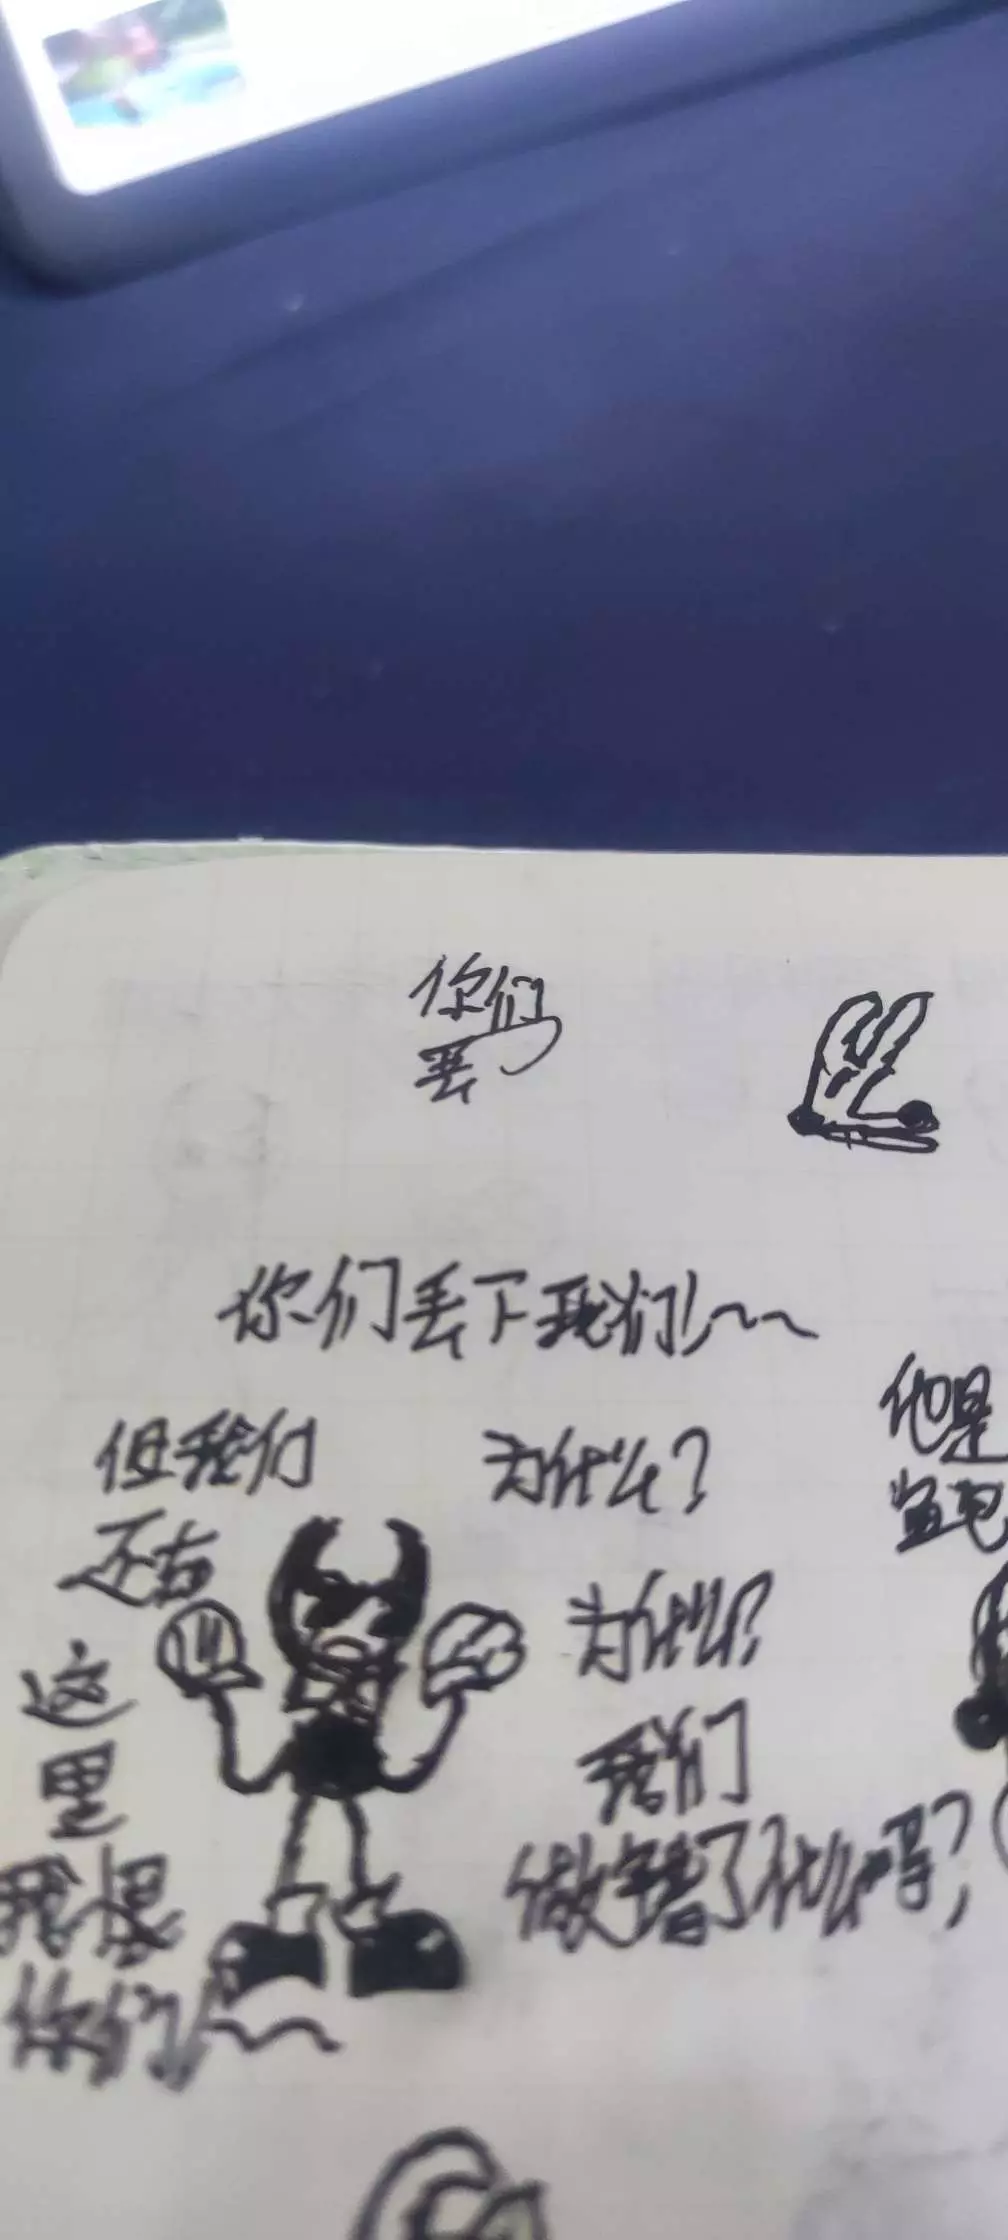 你们
丢
你们丢下我们!~~
但我们
还在
这
里
我恨
你们!~~
为什么?
为什么?
我们
做错了什么吗?
他是